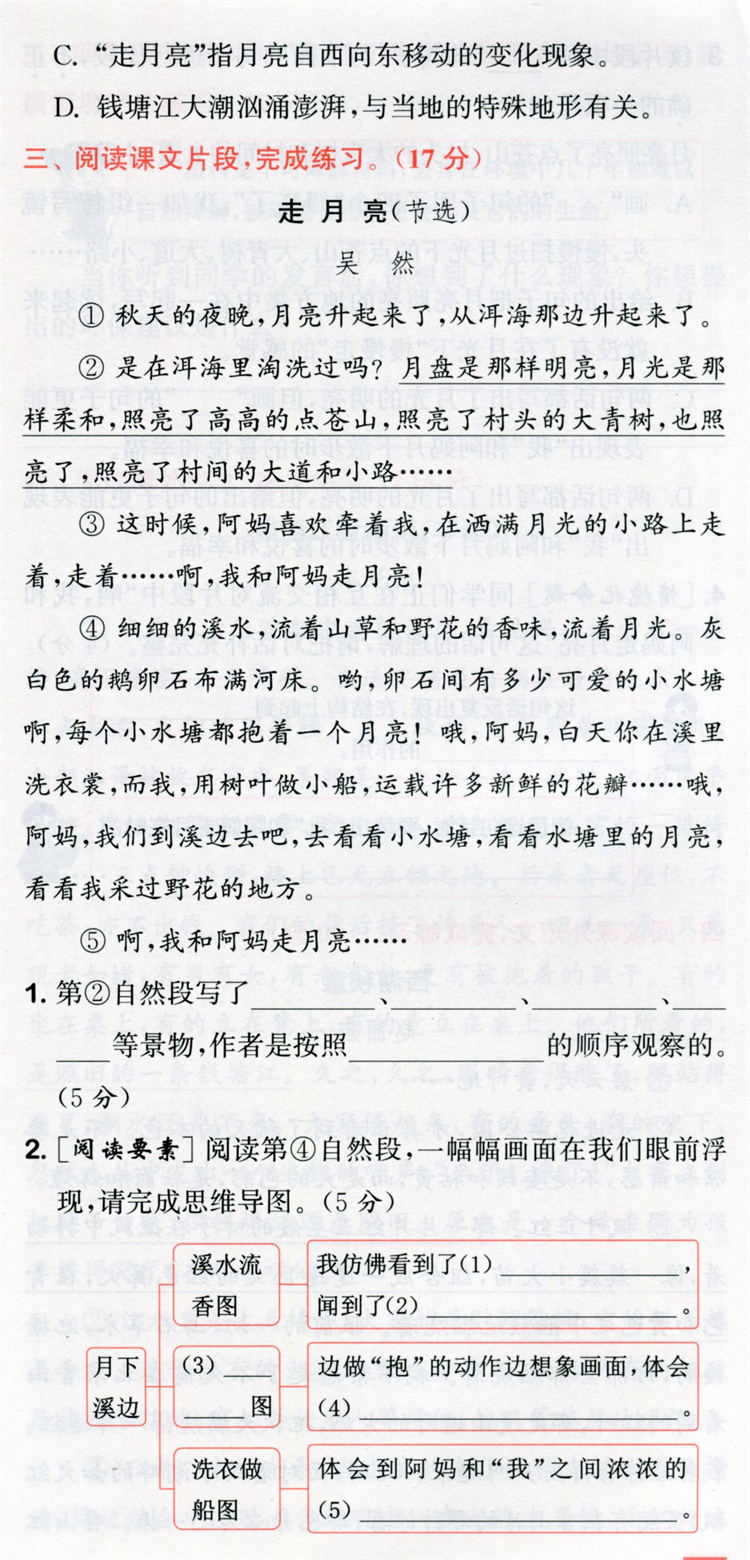 C. “走月亮”指月亮自西向东移动的变化现象。
D. 钱塘江大潮汹涌澎湃,与当地的特殊地形有关。
三 阅读课文片段,完成练习。(17分)
走月亮(节选)
吴 然
① 秋天的夜晚,月亮升起来了,从洱海那边升起来了。
② 是在洱海里淘洗过吗?月盘是那样明亮,月光是那
样柔和,照亮了高高的点苍山,照亮了村头的大青树,也照
亮了,照亮了村间的大道和小路……
③ 这时候,阿妈喜欢牵着我,在洒满月光的小路上走
着,走着……啊,我和阿妈走月亮!
④ 细细的溪水,流着山草和野花的香味,流着月光。灰
白色的鹅卵石布满河床。哟,卵石间有多少可爱的小水塘
啊,每个小水塘都抱着一个月亮!哦,阿妈,白天你在溪里
洗衣裳,而我,用树叶做小船,运载许多新鲜的花瓣……哦,
阿妈,我们到溪边去吧,去看看小水塘,看看水塘里的月亮,
看看我采过野花的地方。
⑤ 啊,我和阿妈走月亮……
1. 第②自然段写了________、________、____
____等景物,作者是按照____________的顺序观察的。
(5分)
2. [阅读要素]阅读第④自然段,一幅幅画面在我们眼前浮
现,请完成思维导图。(5分)
月下
溪边
溪水流
香图
我仿佛看到了(1)________,
闻到了(2)________。
(3)____
____图
边做“抱”的动作边想象画面,体会
(4)________。
洗衣做
船图
体会到阿妈和“我”之间浓浓的
(5)________。